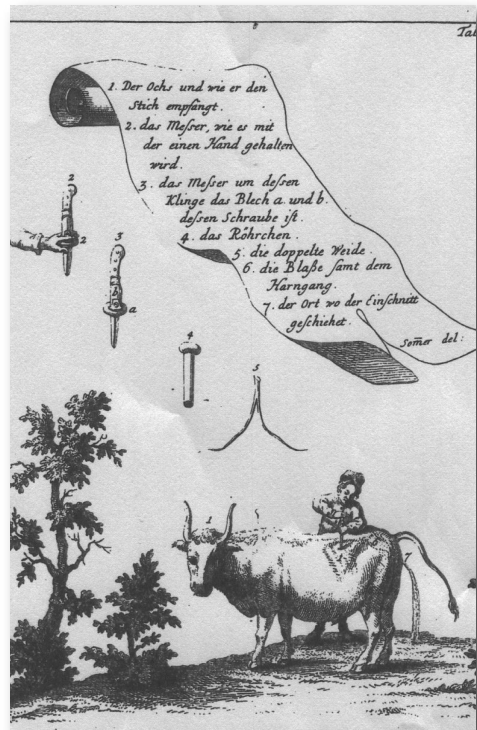 Tab
1. Der Ochs und wie er den
Stich empfängt.
2. das Meſſer, wie es mit
der einen Hand gehalten
wird.
3. das Meſſer um deſſen
Klinge das Blech a. und b.
deſſen Schraube iſt.
4. das Röhrchen.
5. die doppelte Weide.
6. die Blaße ſamt dem
Harngang.
7. der Ort wo der Einſchnitt
geſchiehet.
Som̄er del:
2
2
3
b
a
4
5
1
7